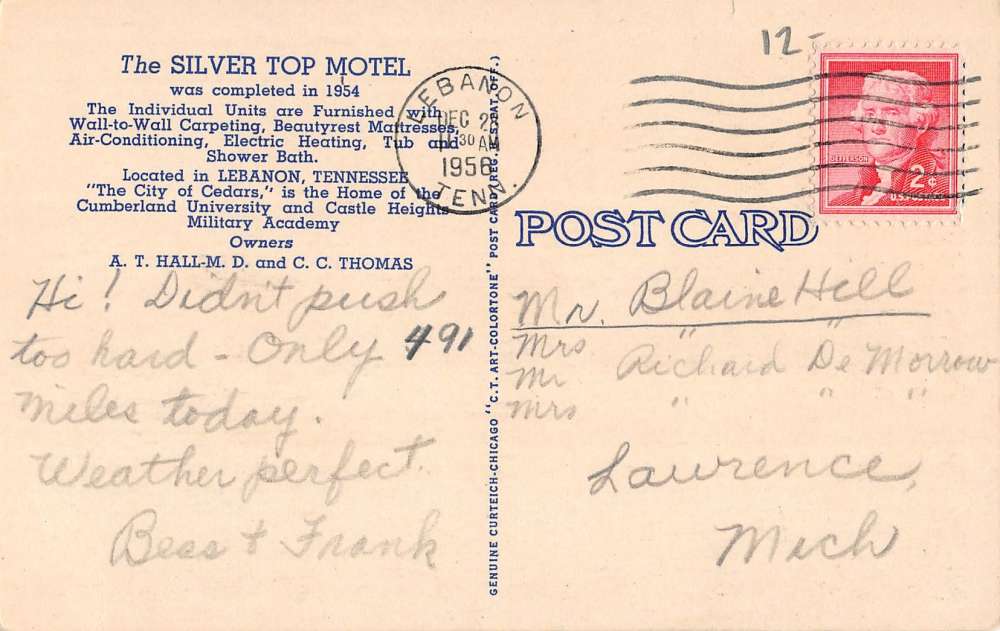 The SILVER TOP MOTEL
was completed in 1954
The Individual Units are Furnished with
Wall-to-Wall Carpeting, Beautyrest Mattresses,
Air-Conditioning, Electric Heating, Tub and
Shower Bath.
Located in LEBANON, TENNESSEE
"The City of Cedars," is the Home of the
Cumberland University and Castle Heights
Military Academy
Owners
A. T. HALL-M. D. and C. C. THOMAS
Hi! Didn't push
too hard - Only 491
miles today.
Weather perfect.
Bess & Frank
GENUINE CURTEICH-CHICAGO "C.T. ART-COLORTONE" POST CARD (REG. U.S. PAT. OFF.)
LEBANON
DEC 28
11 30 AM
1956
TENN.
12-
JEFFERSON
2¢
POST CARD
Mr. Blaine Hill
Mrs " "
Mr Richard De Morrow
Mrs " " "
Lawrence,
Mich